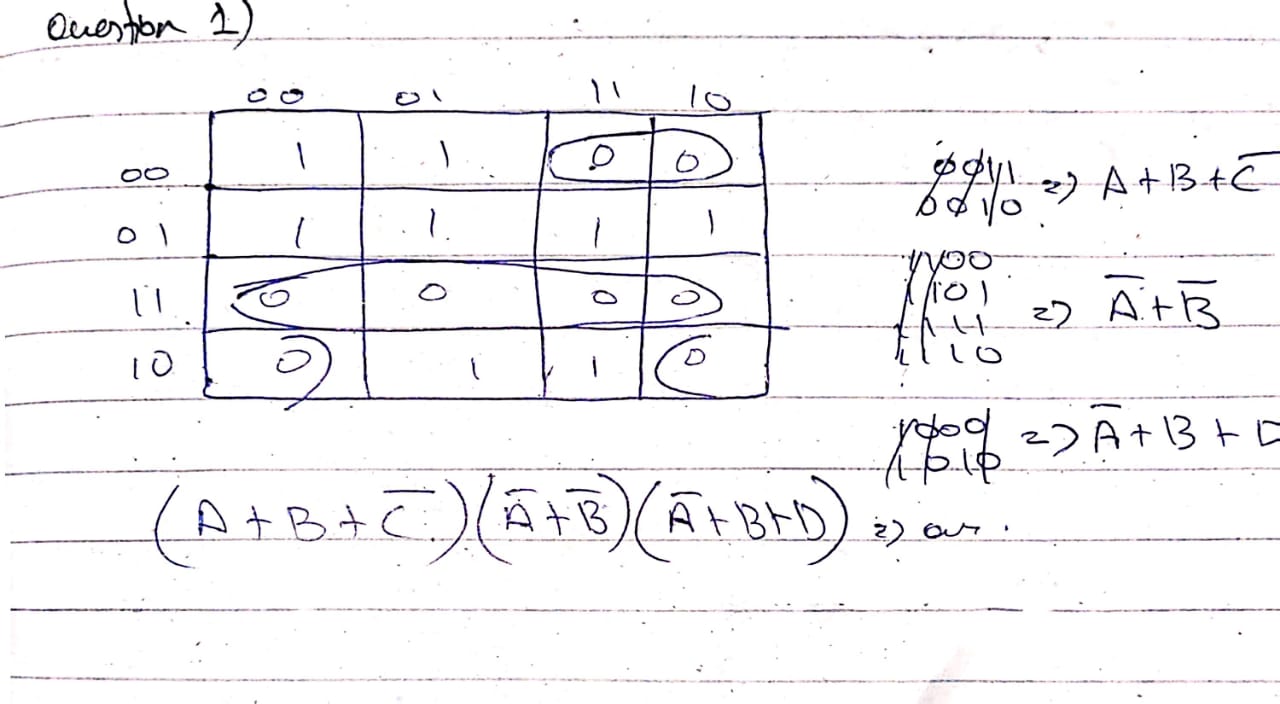 Question 1)
00 01 11 10
00 1 1 0 0
01 1 1 1 1
11 0 0 0 0
10 0 1 1 0
0011
0010 => A + B + C̅
1100
1101
1111 => A̅ + B̅
1110
1000 => A̅ + B + D
1010
(A + B + C̅)(A̅ + B̅)(A̅ + B + D) =>